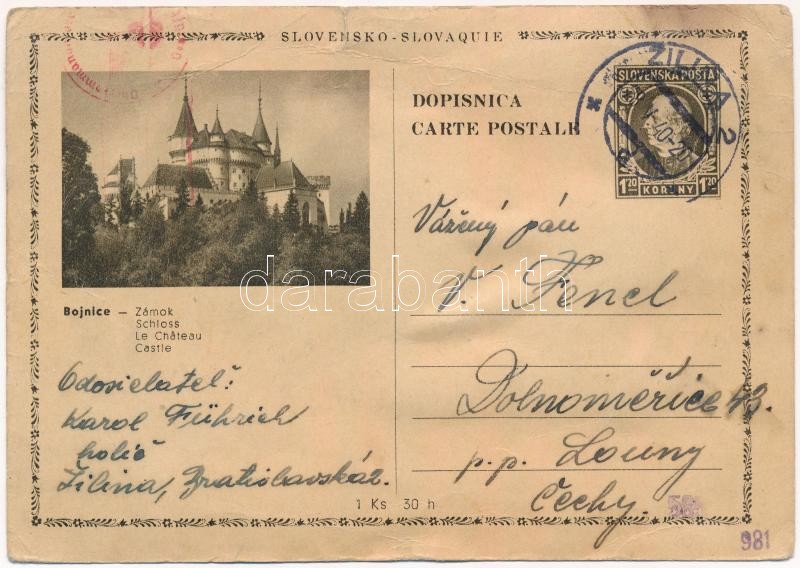 SLOVENSKO - SLOVAQUIE
DOPISNICA
CARTE POSTALE
SLOVENSKÁ POŠTA
1'20 KORUNY 1'20
ŽILINA 2
Bojnice — Zámok
Schloss
Le Château
Castle
Odosielateľ:
Karol Führich
holič
Žilina, Bratislavská 2.
Vážený pán
V. Fencl
Dolnoměřice 43.
p.p. Louny
Čechy.
1 Ks 30 h
981
darabanth